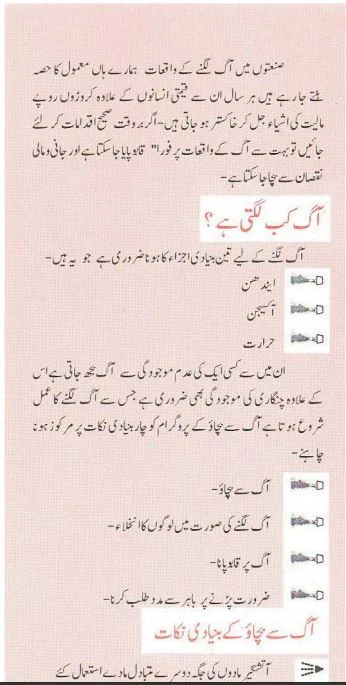 صنعتوں میں آگ لگنے کے واقعات ہمارے ہاں معمول کا حصہ
بنتے جا رہے ہیں ہر سال ان سے قیمتی انسانوں کے علاوہ کروڑوں روپے
مالیت کی اشیاء جل کر خاکستر ہو جاتی ہیں۔ اگر بروقت صحیح اقدامات کر لئے
جائیں تو بہت سے آگ کے واقعات پر فورا" قابو پایا جا سکتا ہے اور جانی و مالی
نقصان سے بچا جا سکتا ہے۔
آگ کب لگتی ہے؟
آگ لگنے کے لیے تین بنیادی اجزاء کا ہونا ضروری ہے جو یہ ہیں۔
ایندھن
آکسیجن
حرارت
ان میں سے کسی ایک کی عدم موجودگی سے آگ بجھ جاتی ہے اس
کے علاوہ چنگاری کی موجودگی بھی ضروری ہے جس سے آگ لگنے کا عمل
شروع ہوتا ہے آگ سے بچاؤ کے پروگرام کو چار بنیادی نکات پر مرکوز ہونا
چاہئے۔
آگ سے بچاؤ۔
آگ لگنے کی صورت میں لوگوں کا انخلاء۔
آگ پر قابو پانا۔
ضرورت پڑنے پر باہر سے مدد طلب کرنا۔
آگ سے بچاؤ کے بنیادی نکات
آتشگیر مادوں کی جگہ دوسرے متبادل مادے استعمال کئے